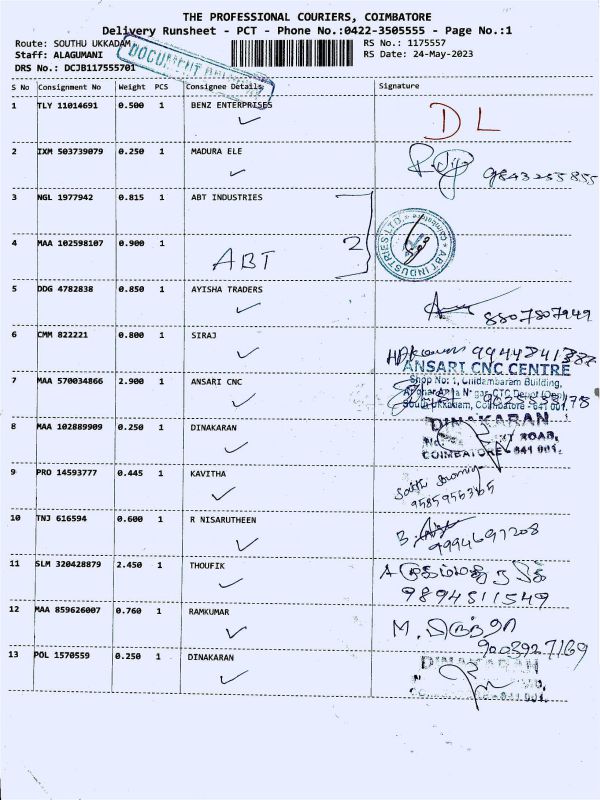 THE PROFESSIONAL COURIERS, COIMBATORE
Delivery Runsheet - PCT - Phone No.:0422-3505555 - Page No.:1
Route: SOUTHU UKKADAM RS No.: 1175557
Staff: ALAGUMANI RS Date: 24-May-2023
DRS No.: DCJB117555701
DOCUMENT
S No Consignment No Weight PCS Consignee Details Signature
1 TLY 11014691 0.500 1 BENZ ENTERPRISES
DL
2 IXM 503739079 0.250 1 MADURA ELE
9843255855
3 NGL 1977942 0.815 1 ABT INDUSTRIES
4 MAA 102598107 0.900 1
ABT 2
ABT INDUSTRIES LTD. Coimbatore
5 DDG 4782838 0.850 1 AYISHA TRADERS
8807807949
6 CMM 822221 0.800 1 SIRAJ
ANSARI CNC CENTRE
Shop No: 1, Chidambaram Building,
7 MAA 570034866 2.900 1 ANSARI CNC
South Ukkadam, Coimbatore - 641 001.
8 MAA 102889909 0.250 1 DINAKARAN
DINAKARAN
ROAD,
COIMBATORE - 641 001.
9 PRO 14593777 0.445 1 KAVITHA
9585956365
10 TNJ 616594 0.600 1 R NISARUTHEEN
9994697208
11 SLM 320428879 2.450 1 THOUFIK
9894511549
12 MAA 859626007 0.760 1 RAMKUMAR
9003927169
13 POL 1570559 0.250 1 DINAKARAN
DINAKARAN